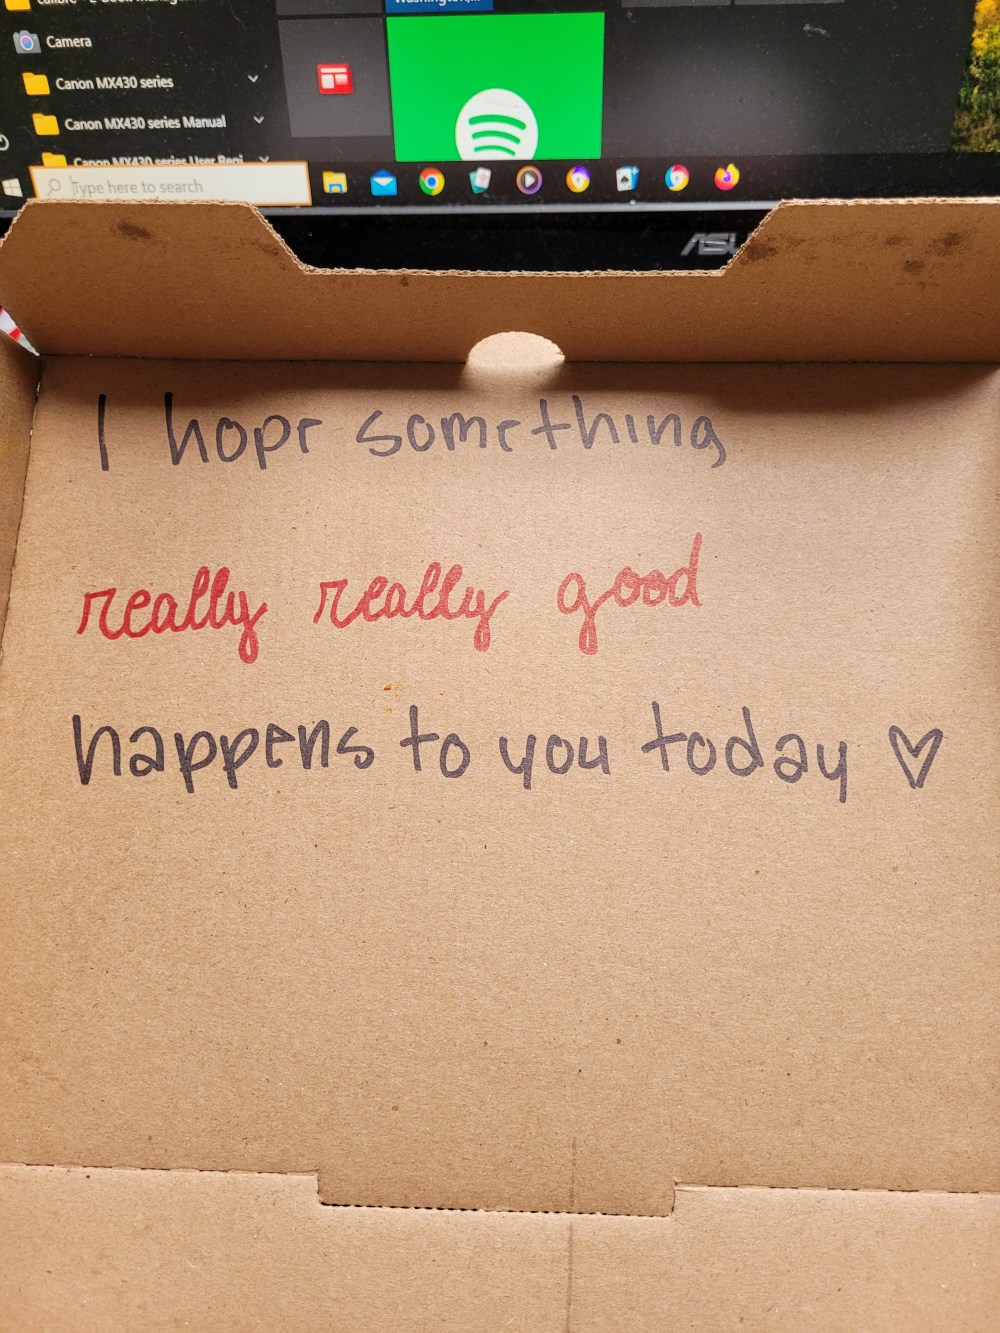 Camera
Canon MX430 series
Canon MX430 series Manual
Canon MX430 series User Regi
Type here to search
I hope something
really really good
happens to you today ♡